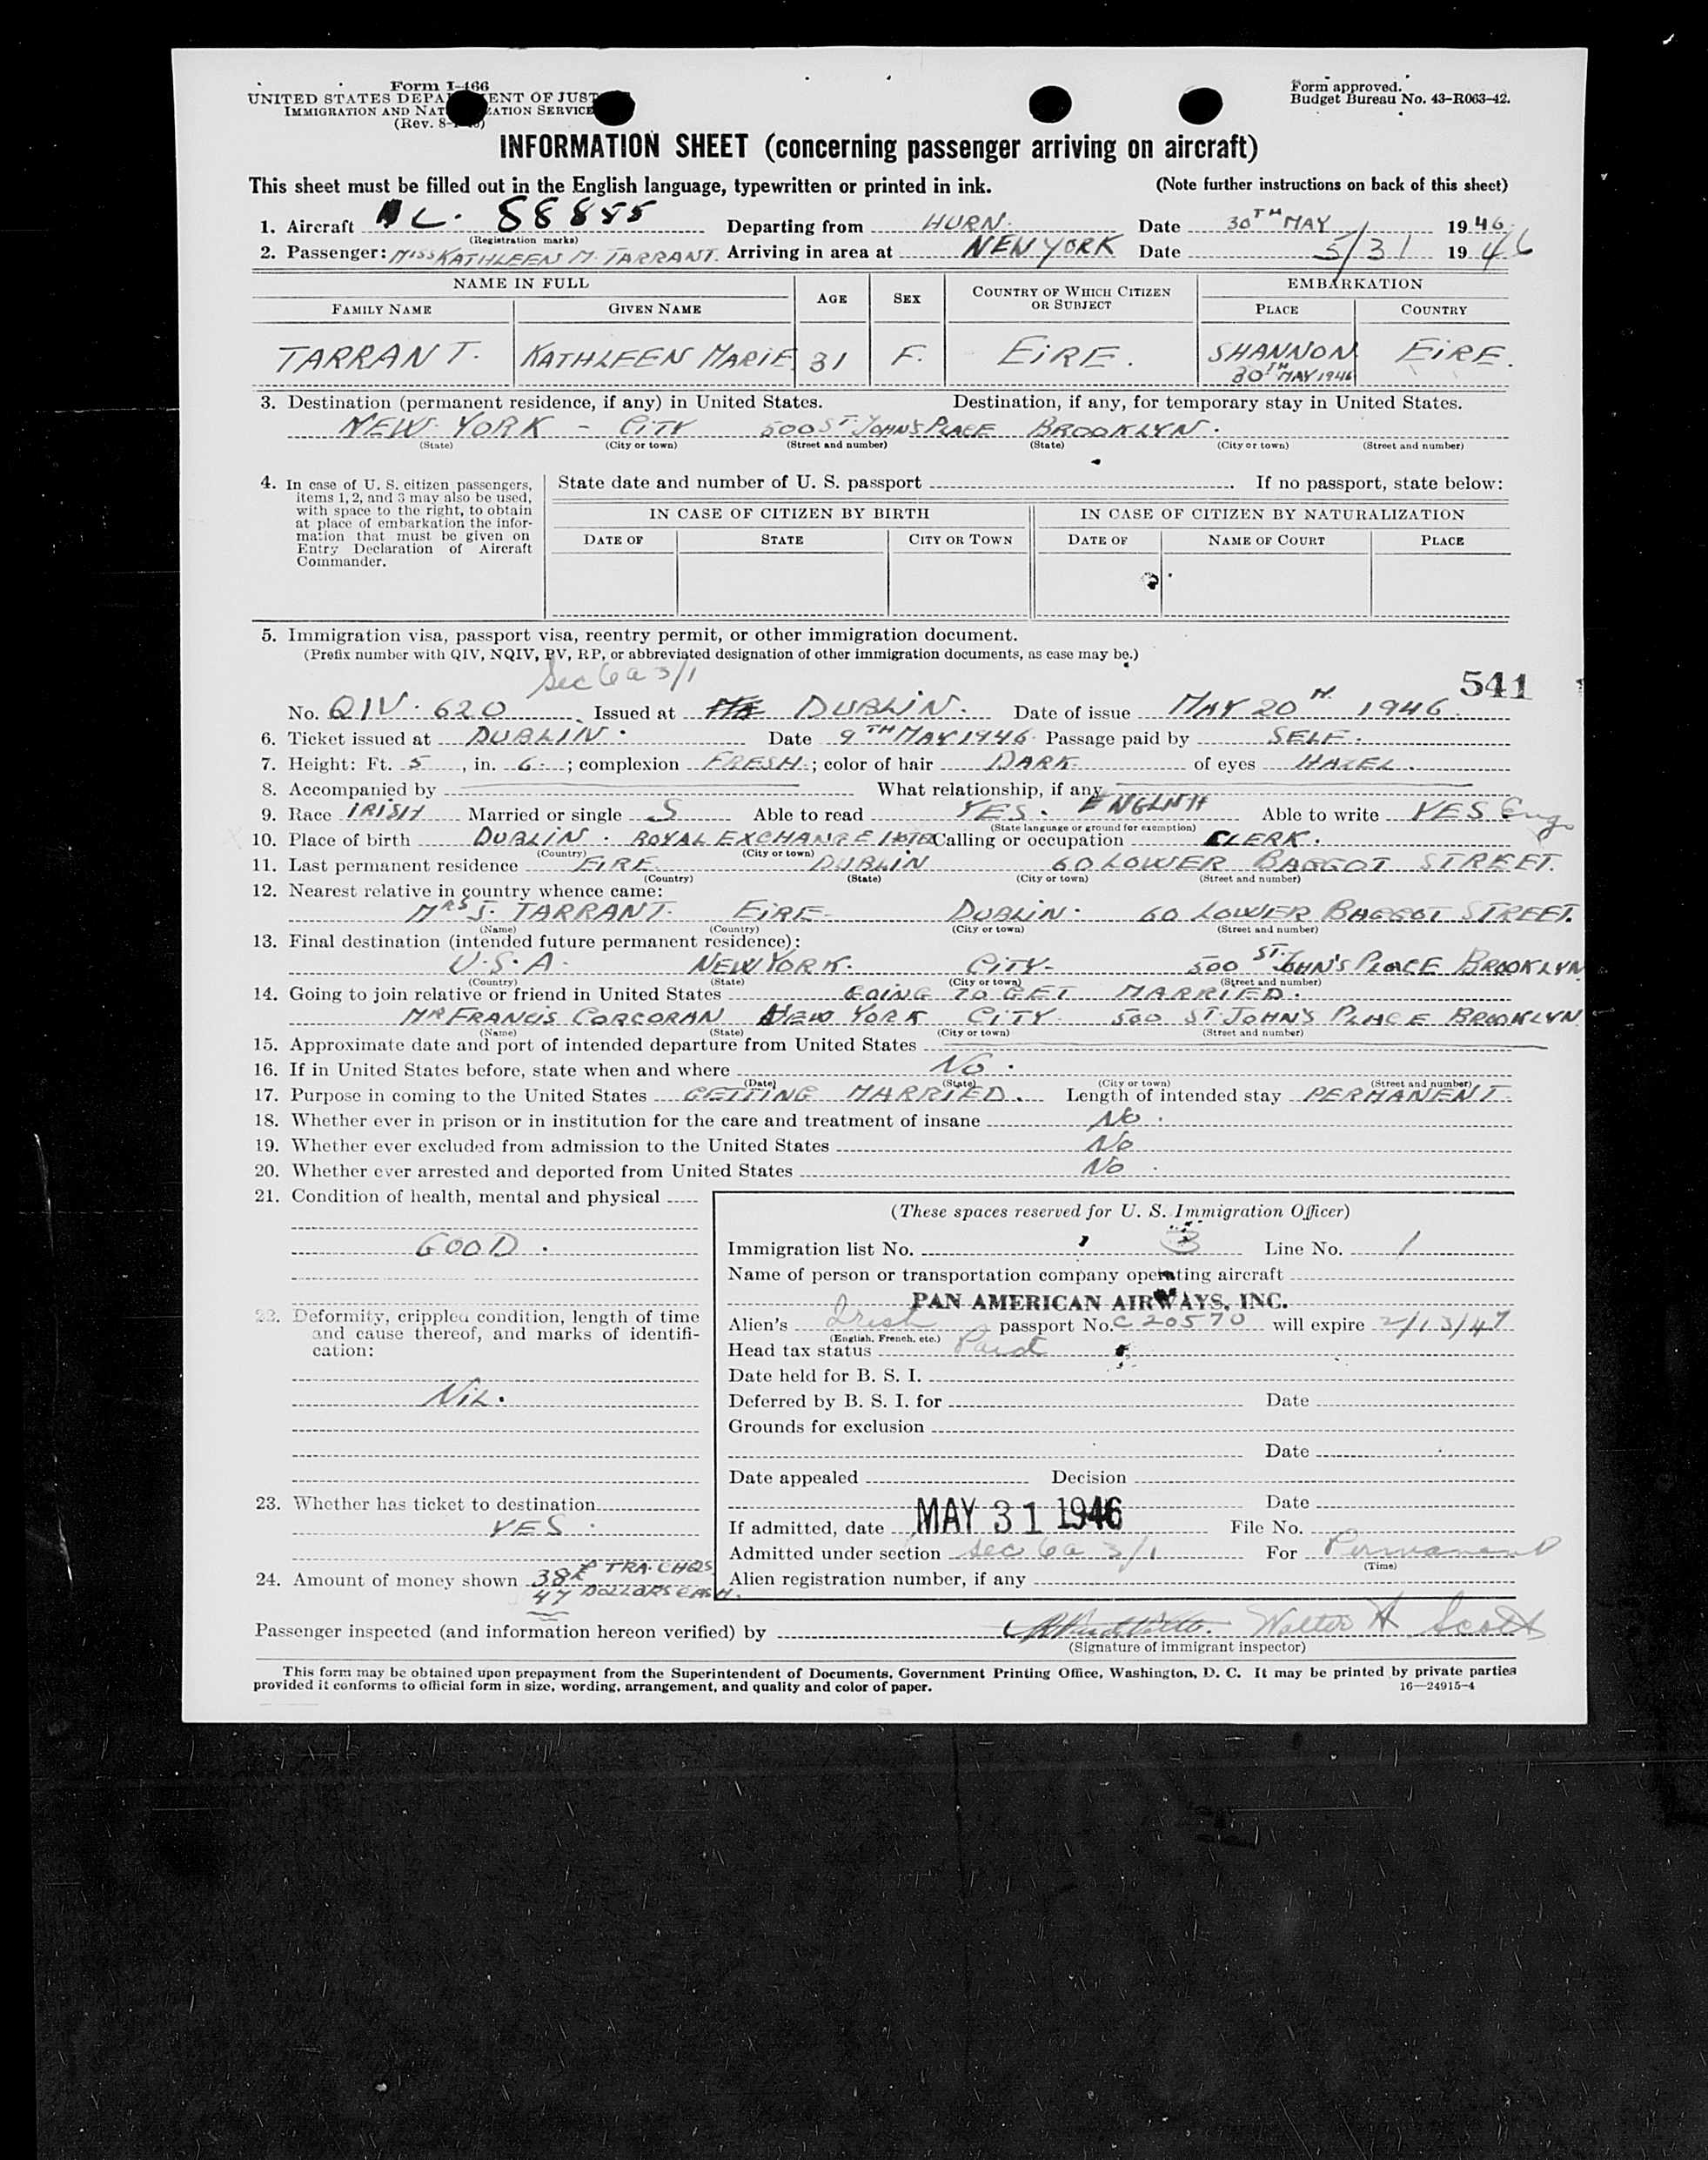 Form I-466
UNITED STATES DEPA ENT OF JUST
IMMIGRATION AND NAT ZATION SERVICE
(Rev. 8- )
Form approved.
Budget Bureau No. 43-R063-42.
INFORMATION SHEET (concerning passenger arriving on aircraft)
This sheet must be filled out in the English language, typewritten or printed in ink. (Note further instructions on back of this sheet)
1. Aircraft NC. 88855 Departing from HURN. Date 30TH MAY 1946.
(Registration marks)
2. Passenger: MISS KATHLEEN M. TARRANT. Arriving in area at NEW YORK Date 5/31 1946
NAME IN FULL AGE SEX COUNTRY OF WHICH CITIZEN OR SUBJECT EMBARKATION
FAMILY NAME GIVEN NAME PLACE COUNTRY
TARRANT. KATHLEEN MARIE 31 F. EIRE. SHANNON EIRE.
30TH MAY 1946
3. Destination (permanent residence, if any) in United States. Destination, if any, for temporary stay in United States.
NEW YORK - CITY 500 ST JOHN'S PLACE BROOKLYN.
(State) (City or town) (Street and number) (State) (City or town) (Street and number)
4. In case of U. S. citizen passengers, items 1, 2, and 3 may also be used, with space to the right, to obtain at place of embarkation the information that must be given on Entry Declaration of Aircraft Commander.
State date and number of U. S. passport If no passport, state below:
IN CASE OF CITIZEN BY BIRTH IN CASE OF CITIZEN BY NATURALIZATION
DATE OF STATE CITY OR TOWN DATE OF NAME OF COURT PLACE
5. Immigration visa, passport visa, reentry permit, or other immigration document.
(Prefix number with QIV, NQIV, PV, RP, or abbreviated designation of other immigration documents, as case may be.)
Sec 6a 3/1
541
No. QIV. 620 Issued at DUBLIN. Date of issue MAY 20TH 1946.
6. Ticket issued at DUBLIN. Date 9TH MAY 1946. Passage paid by SELF.
7. Height: Ft. 5, in. 6.; complexion FRESH.; color of hair DARK of eyes HAZEL.
8. Accompanied by What relationship, if any
9. Race IRISH Married or single S Able to read YES. ENGLISH Able to write YES Eng
(State language or ground for exemption)
10. Place of birth DUBLIN. ROYAL EXCHANGE HOTEL Calling or occupation CLERK.
(Country) (City or town)
11. Last permanent residence EIRE DUBLIN 60 LOWER BAGGOT STREET.
(Country) (State) (City or town) (Street and number)
12. Nearest relative in country whence came:
MRS J. TARRANT. EIRE. DUBLIN. 60 LOWER BAGGOT STREET.
(Name) (Country) (City or town) (Street and number)
13. Final destination (intended future permanent residence):
U.S.A. NEW YORK. CITY- 500 ST. JOHN'S PLACE BROOKLYN
(Country) (State) (City or town) (Street and number)
14. Going to join relative or friend in United States GOING TO GET MARRIED.
MR FRANCIS CORCORAN NEW YORK CITY 500 ST. JOHN'S PLACE BROOKLYN
(Name) (State) (City or town) (Street and number)
15. Approximate date and port of intended departure from United States
16. If in United States before, state when and where NO.
(Date) (State) (City or town) (Street and number)
17. Purpose in coming to the United States GETTING MARRIED. Length of intended stay PERMANENT.
18. Whether ever in prison or in institution for the care and treatment of insane NO.
19. Whether ever excluded from admission to the United States NO
20. Whether ever arrested and deported from United States NO.
21. Condition of health, mental and physical
GOOD.
22. Deformity, crippled condition, length of time and cause thereof, and marks of identification:
NIL.
23. Whether has ticket to destination
YES.
24. Amount of money shown 38£ TRA. CHQS
47 DOLLARS CASH.
(These spaces reserved for U. S. Immigration Officer)
Immigration list No. 3 Line No. 1
Name of person or transportation company operating aircraft
PAN AMERICAN AIRWAYS, INC.
Alien's Irish passport No. C 20570 will expire 2/13/47
(English, French, etc.)
Head tax status Paid
Date held for B. S. I.
Deferred by B. S. I. for Date
Grounds for exclusion
Date
Date appealed Decision
Date
If admitted, date MAY 31 1946 File No.
Admitted under section Sec 6a 3/1 For Permanent
(Time)
Alien registration number, if any
Passenger inspected (and information hereon verified) by Walter H Scott
(Signature of immigrant inspector)
This form may be obtained upon prepayment from the Superintendent of Documents, Government Printing Office, Washington, D. C. It may be printed by private parties
provided it conforms to official form in size, wording, arrangement, and quality and color of paper. 16—24915-4